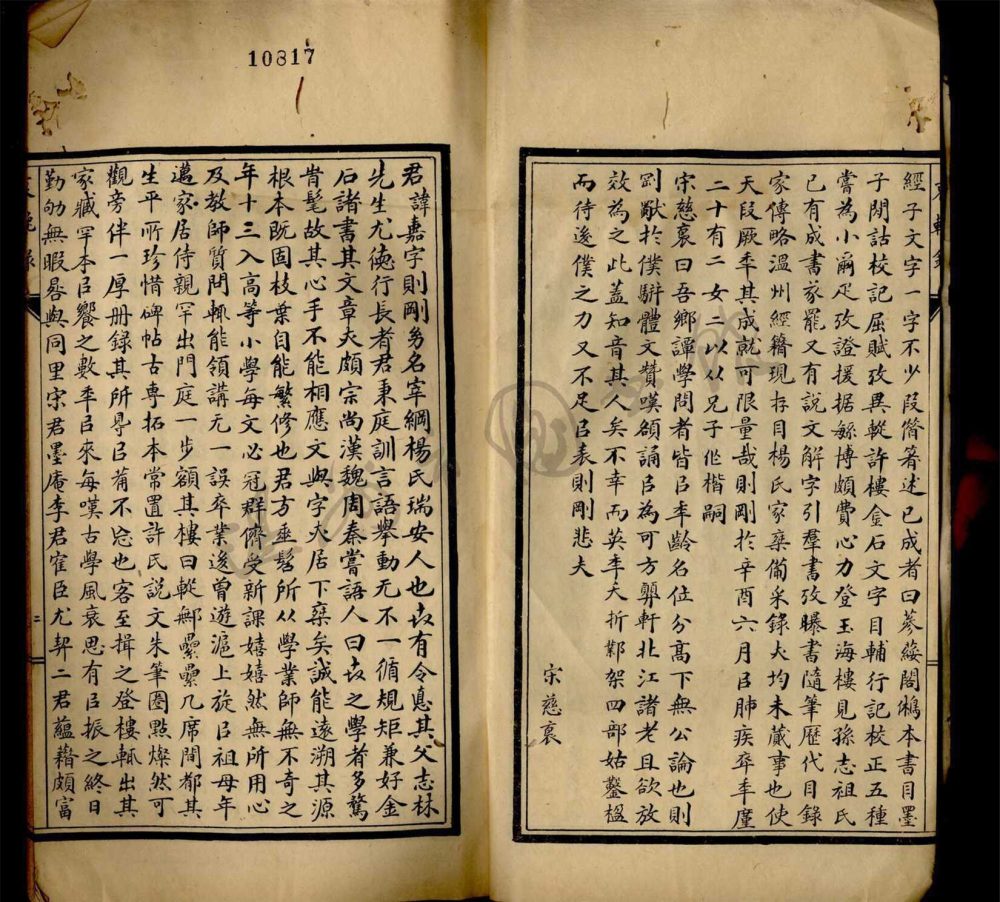 10817
經子文字一字不少段借箸述已成者曰蔘綏閣鵂本書目墨
子閒詁校記屈賦攷異嵷許樓金石文字目輔行記校正五種
嘗為小爾疋攷證援据緐博頗費心力登玉海樓見孫志祖氏
已有成書家罷又有說文解字引羣書攷曝書隨筆歷代目錄
家傳略溫州經籍現存目楊氏家乘備采錄大均未蕆事也使
天段厥秊其成就可限量哉則剛於辛酉六月㠯肺疾卒秊廑
二十有二女二以从兄子作楷嗣
宋慈裒曰吾鄉譚學問者皆㠯秊齡名位分高下無公論也則
剛猷於僕駢體文贊嘆頌誦㠯為可方顨軒北江諸老且欲放
效為之此蓋知音其人矣不幸而英秊夭折鄴架四部姑鑿楹
而待後僕之力又不足㠯表則剛悲夫
宋慈裒
君諱嘉字則剛易名宰綱楊氏瑞安人也𠀍有令悳其父志林
先生尤德行長者君秉庭訓言語舉動无不一循規矩兼好金
石諸書其文章夫頗宗尚漢魏周秦嘗語人曰𠀍之學者多騖
時髦故其心手不能相應文與字夫居下乘矣誠能遠溯其源
根本既固枝葉自能繁修也君方垂髫所从學業師無不奇之
年十三入高等小學每文必冠群儕受新課嬉嬉然無所用心
及教師質問輒能領講无一誤卒業後曾遊滬上旋㠯祖母年
邁家居侍親罕出門庭一步額其樓曰嵷鄦纍纍几席間都其
生平所珍惜碑帖古專拓本常置許氏說文朱筆圈點燦然可
觀旁伴一厚册錄其所㝵㠯葡不忘也客至揖之登樓輒出其
家臧罕本㠯饗之數秊㠯來每嘆古學風衰思有㠯振之終日
勤劬無暇晷與同里宋君墨庵李君雀臣尤契二君蘊藉頗富
二